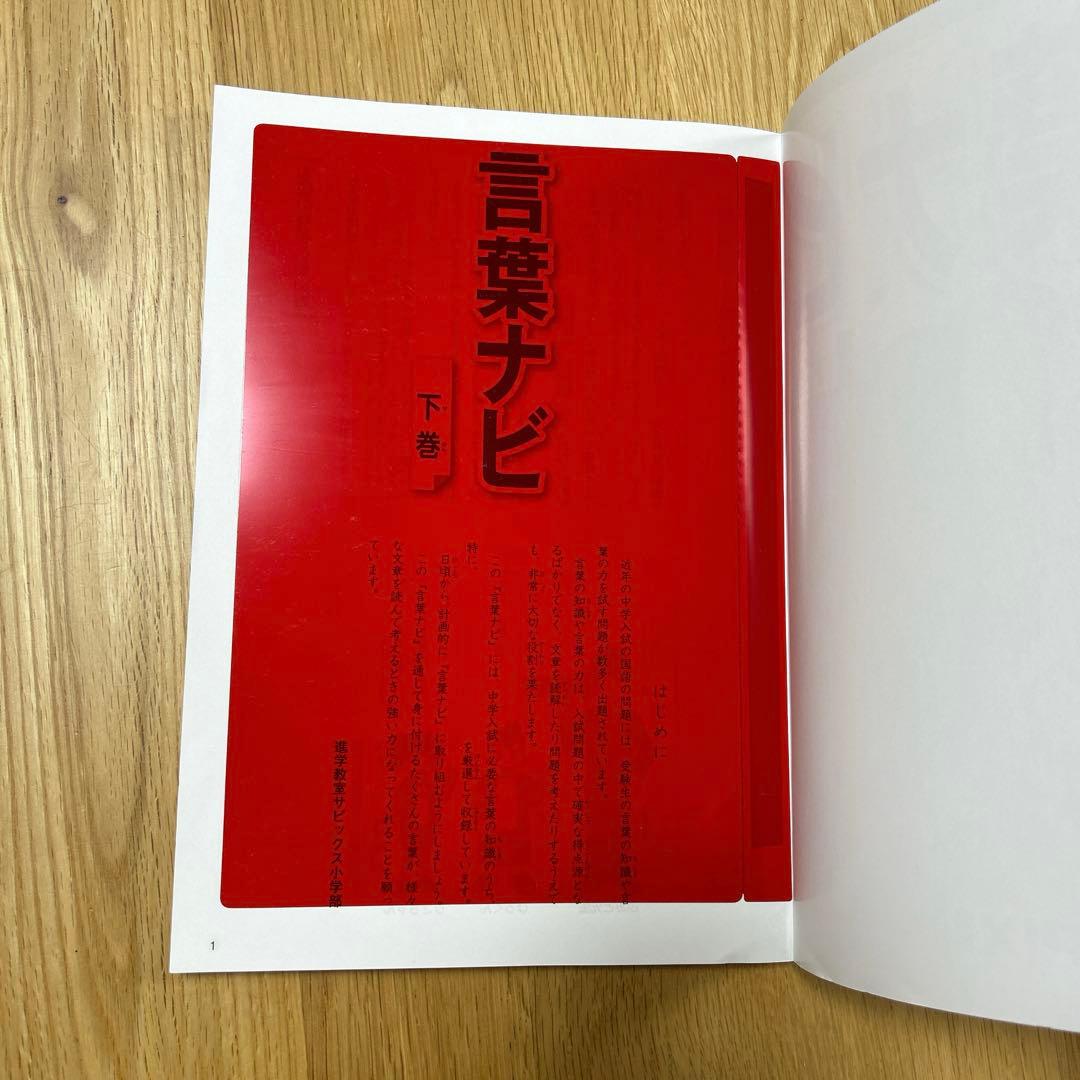 言葉ナビ
下巻
はじめに
近年の中学入試の国語の問題には、受験生の言葉の知識や言
葉の力を試す問題が数多く出題されています。
言葉の知識や言葉の力は、入試問題の中で確実な得点源とな
るばかりでなく、文章を読解したり問題を考えたりするうえで
も、非常に大切な役割を果たします。
この『言葉ナビ』には、中学入試に必要な言葉の知識のうち、
特に、
を厳選して収録しています。
日頃から、計画的に『言葉ナビ』に取り組むようにしましょう。
この『言葉ナビ』を通して身に付けるたくさんの言葉が、様々
な文章を読んで考えるときの強い力になってくれることを願っ
ています。
進学教室サピックス小学部
1